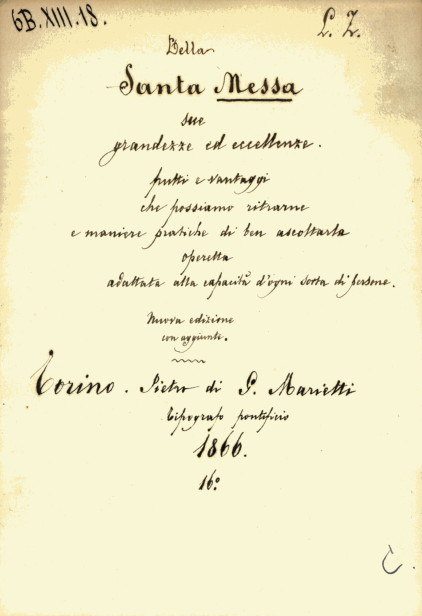 6B.XIII.18.
L. Z.
Della
Santa Messa
sue
grandezze ed eccellenze.
frutti e vantaggi
che possiamo ritrarne
e maniere pratiche di ben ascoltarla
operetta
adattata alla capacità d'ogni sorta di persone.
Nuova edizione
con aggiunte.
Torino. Pietro di G. Marietti
tipografo pontificio
1866.
16°